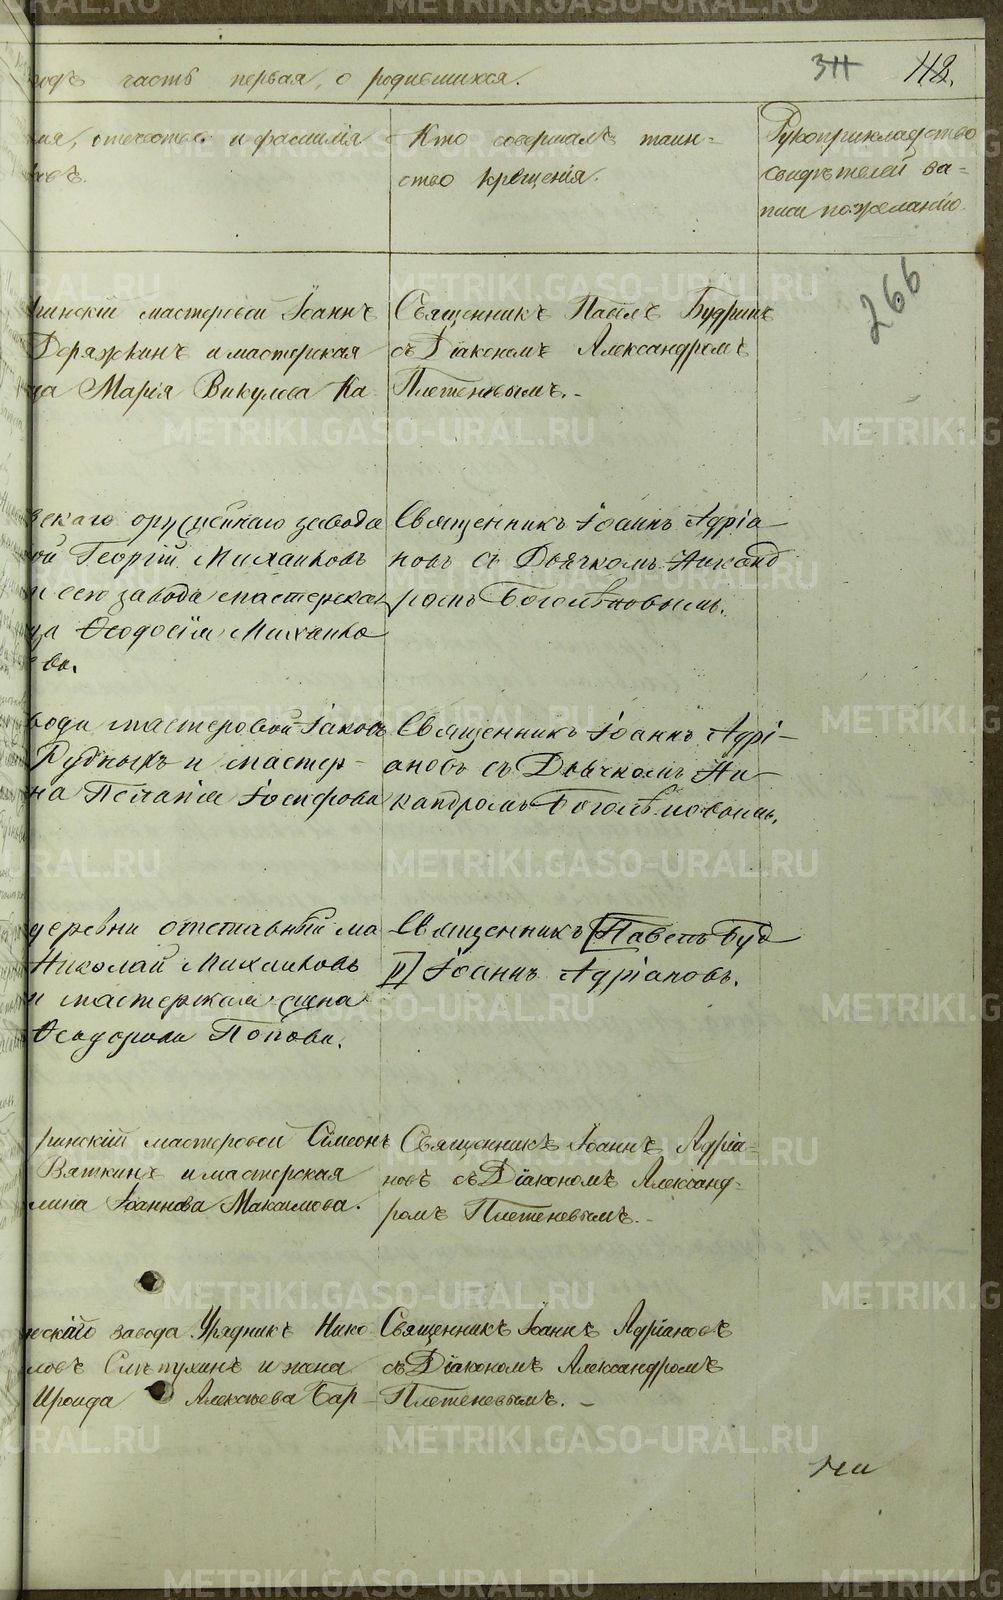 годъ часть первая, о родившихся.
311 118.
мя, отечество и фамилія
ковъ.
Кто совершалъ таин-
ство крещенія.
Рукоприкладство
свидѣтелей за-
писи по желанію.
266
ринскій мастеровой Іоаннъ
Деряжкинъ и мастерская
ца Марія Викулова Ка
Священникъ Павелъ Будринъ
съ Діакономъ Александромъ
Плетеневымъ.-
вскаго оружейнаго завода
ой Георгій Михаиловъ
и сего завода мастерская
ца Ѳеодосія Михаило
ва.
Священникъ Іоаннъ Адріа-
новъ съ Дьячкомъ Никанд
ромъ Боголѣповымъ.
вода мастеровой Іаковъ
Рудныхъ и мастер-
на Пелагія Іосифова
Священникъ Іоаннъ Адрі-
ановъ съ Дьячкомъ Ни-
кандромъ Боголѣповымъ.
деревни отставный ма
Николай Михаиловъ
и мастерская
Ѳеодорова Попова.
Священникъ [Павелъ Буд
р] Іоаннъ Адріановъ.
ринскій мастеровой Симеонъ
Вяткинъ и мастерская
лина Іоаннова Максимова.
Священникъ Іоаннъ Адріа-
новъ съ Діакономъ Александ-
ромъ Плетеневымъ.-
скаго завода Урядникъ Нико
ловъ Смѣтухинъ и жена
Ироида Алексѣева Бар
Священникъ Іоаннъ Адріановъ
съ Діакономъ Александромъ
Плетеневымъ.-
METRIKI.GASO-URAL.RU